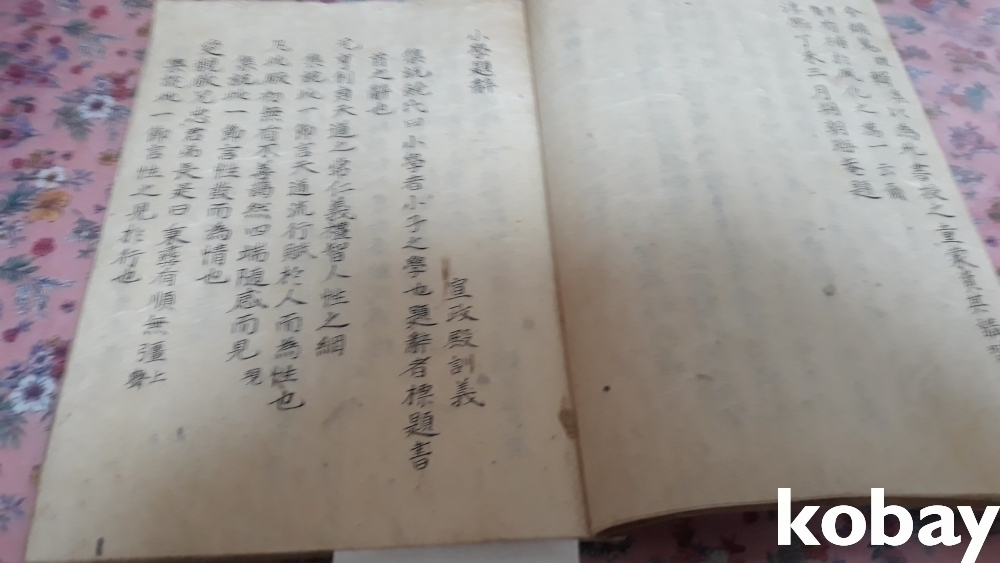 以為此書授之童蒙資其講
有補於風化之萬一云爾
淳熙丁未三月朔朝晦菴題
小學題辭
宣政殿訓義
集說饒氏曰小學者小子之學也題辭者標題書
首之辭也
元亨利貞天道之常仁義禮智人性之綱
集說此一節言天道流行賦於人而為性也
凡此厥初無有不善藹然四端隨感而見 現
集說此一節言性發而為情也
愛親敬兄忠君弟長是曰秉彛有順無彊 上聲
集說此一節言性之見於行也
kobay